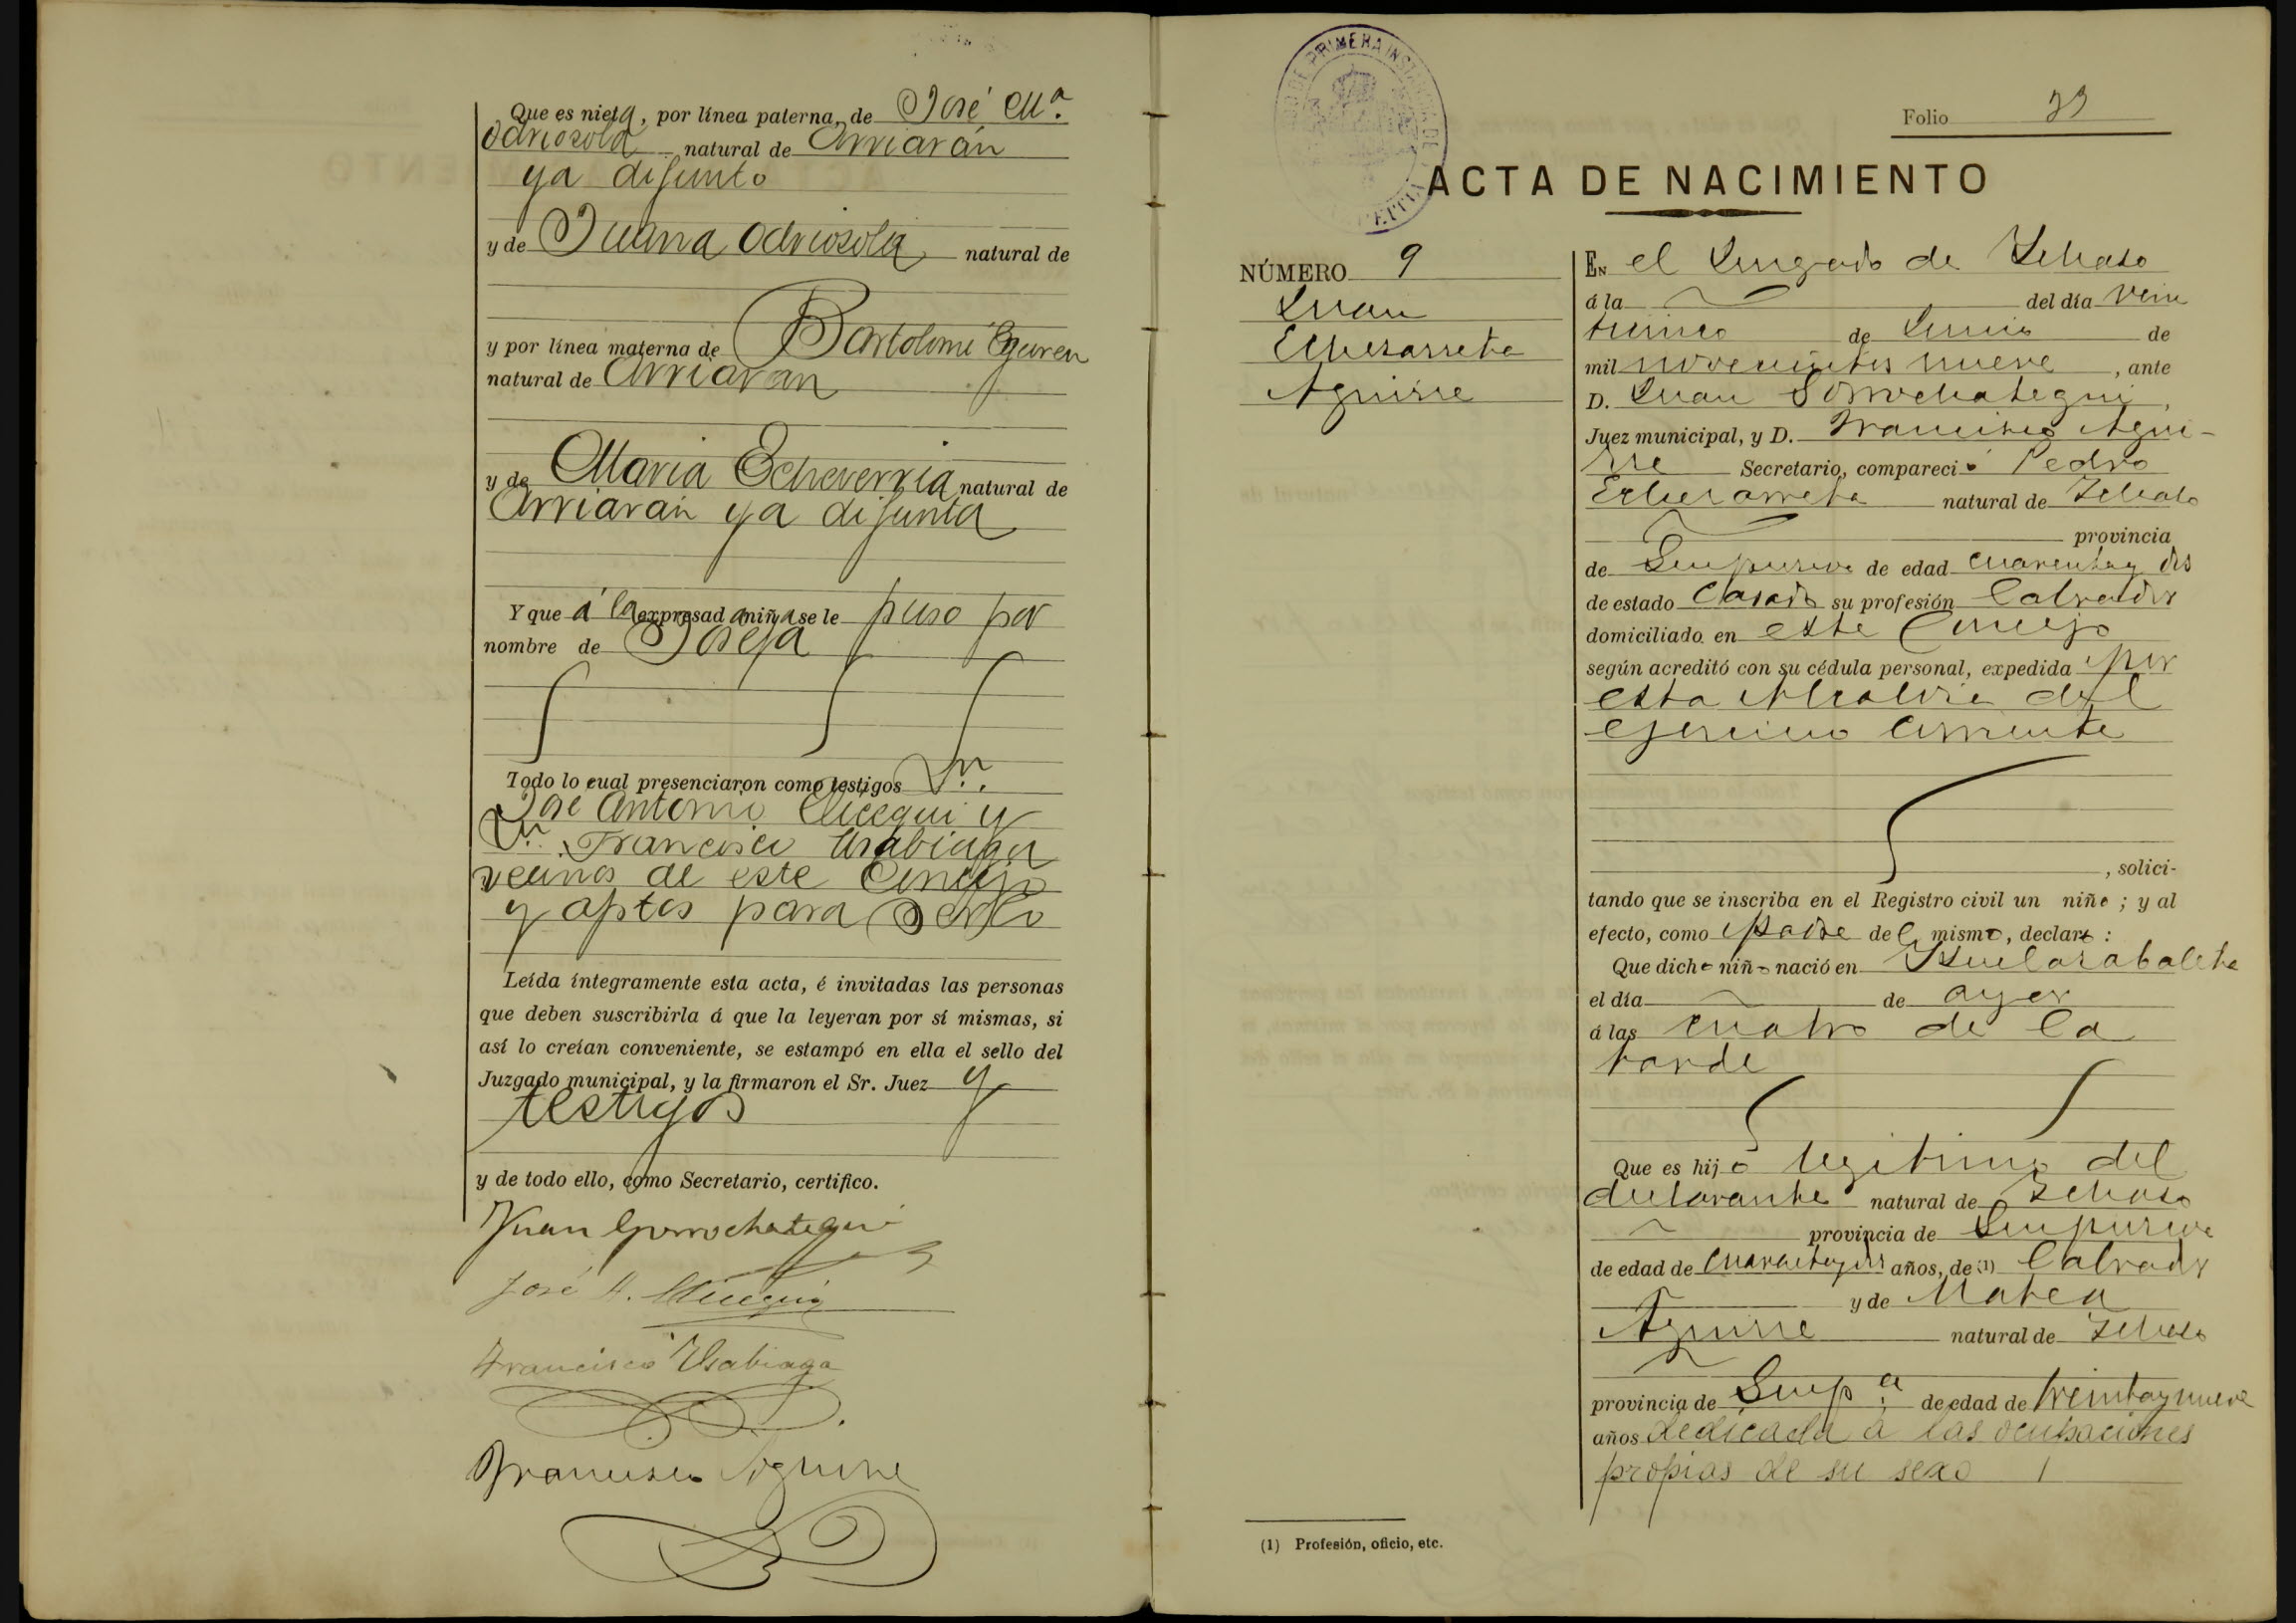 Que es nieta, por línea paterna, de José Mª.
Odriozola natural de Arriarán
ya difunto
y de Juana Odriozola natural de
y por línea materna de Bartolomé Eguren
natural de Arriarán
y de Maria Echeverria natural de
Arriarán ya difunta
Y que á la expresada niña se le puso por
nombre de Josefa
Todo lo cual presenciaron como testigos Dn.
José Antonio y
Dn. Francisco Usabiaga
vecinos de este Concejo
y aptos para serlo
Leída íntegramente esta acta, é invitadas las personas
que deben suscribirla á que la leyeran por sí mismas, si
así lo creían conveniente, se estampó en ella el sello del
Juzgado municipal, y la firmaron el Sr. Juez y
testigos
y de todo ello, como Secretario, certifico.
Juan Gorrochategui
José A.
Francisco Usabiaga
Francisco Aguirre
JUZGADO DE PRIMERA INSTANCIA DE AZPEITIA
Folio
ACTA DE NACIMIENTO
NÚMERO 9
Juan
Echezarreta
Aguirre
EN el Juzgado de Ichaso
á la del día vein
ticinco de Junio de
mil novecientos nueve, ante
D. Juan Gorrochategui,
Juez municipal, y D. Francisco Agui-
rre Secretario, compareció Pedro
Echezarreta natural de Ichaso
provincia
de Guipuzcoa de edad cuarenta y dos
de estado Casado su profesión Labrador
domiciliado en este Concejo
según acreditó con su cédula personal, expedida por
esta Alcaldia del
ejercicio corriente
, solici-
tando que se inscriba en el Registro civil un niño; y al
efecto, como padre del mismo, declaró:
Que dicho niño nació en
el día de ayer
á las cuatro de la
tarde
Que es hijo legitimo del
declarante natural de Ichaso
provincia de Guipuzcoa
de edad de cuarenta y dos años, de (1) Labrador
y de Matea
Aguirre natural de Ichaso
provincia de Guipª. de edad de treinta y nueve
años dedicada á las ocupaciones
propias de su sexo
(1) Profesión, oficio, etc.